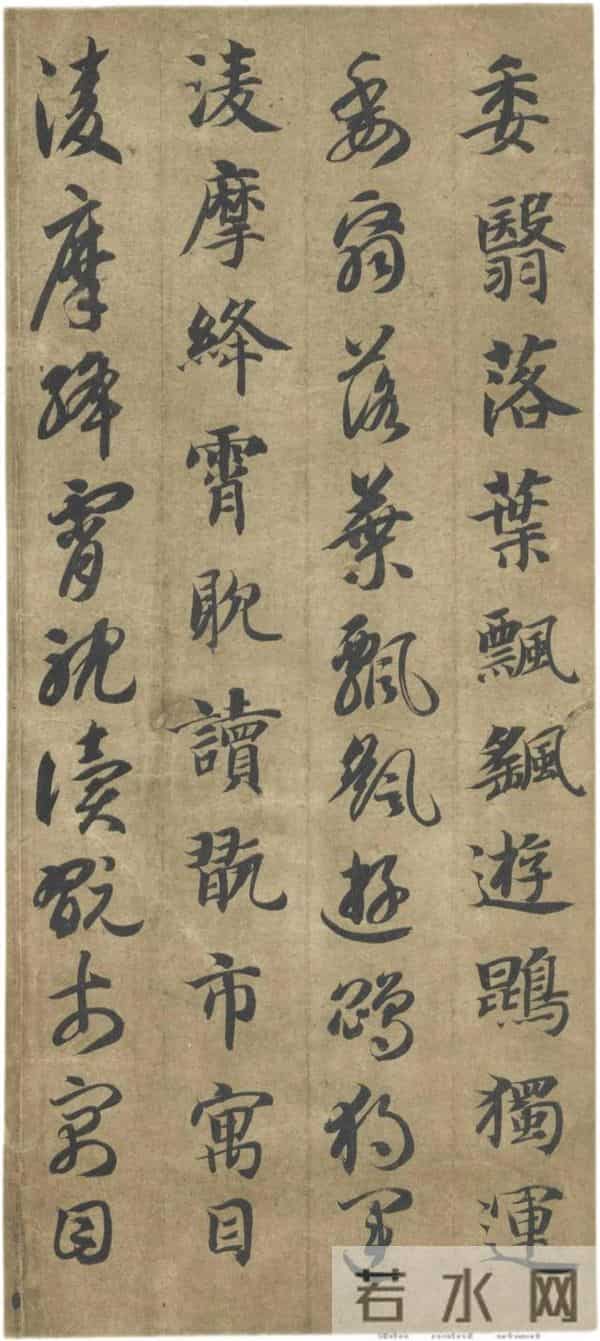 委翳落葉飄颻遊鵾獨運
委翳落葉飄颻遊鵾獨運
淩摩絳霄耽讀翫市寓目
淩摩絳霄耽讀翫市寓目
若水网